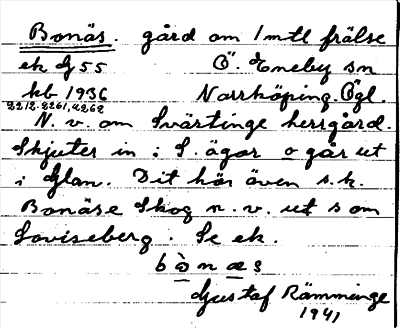 Bonäs. gård om 1 mtl frälse
ek dj 55 Ö. Eneby sn
kb 1936 Norrköping. Ögl.
2212. 2261, 4262
N. v. om Svärtinge herrgård.
Skjuter in i S. ägor o går ut
i Glan. Dit hör även s. k.
Bonäse Skog n. v. ut s om
Loviseberg. Se ek.
b ò n æ s
Gustaf Rämminge
1941